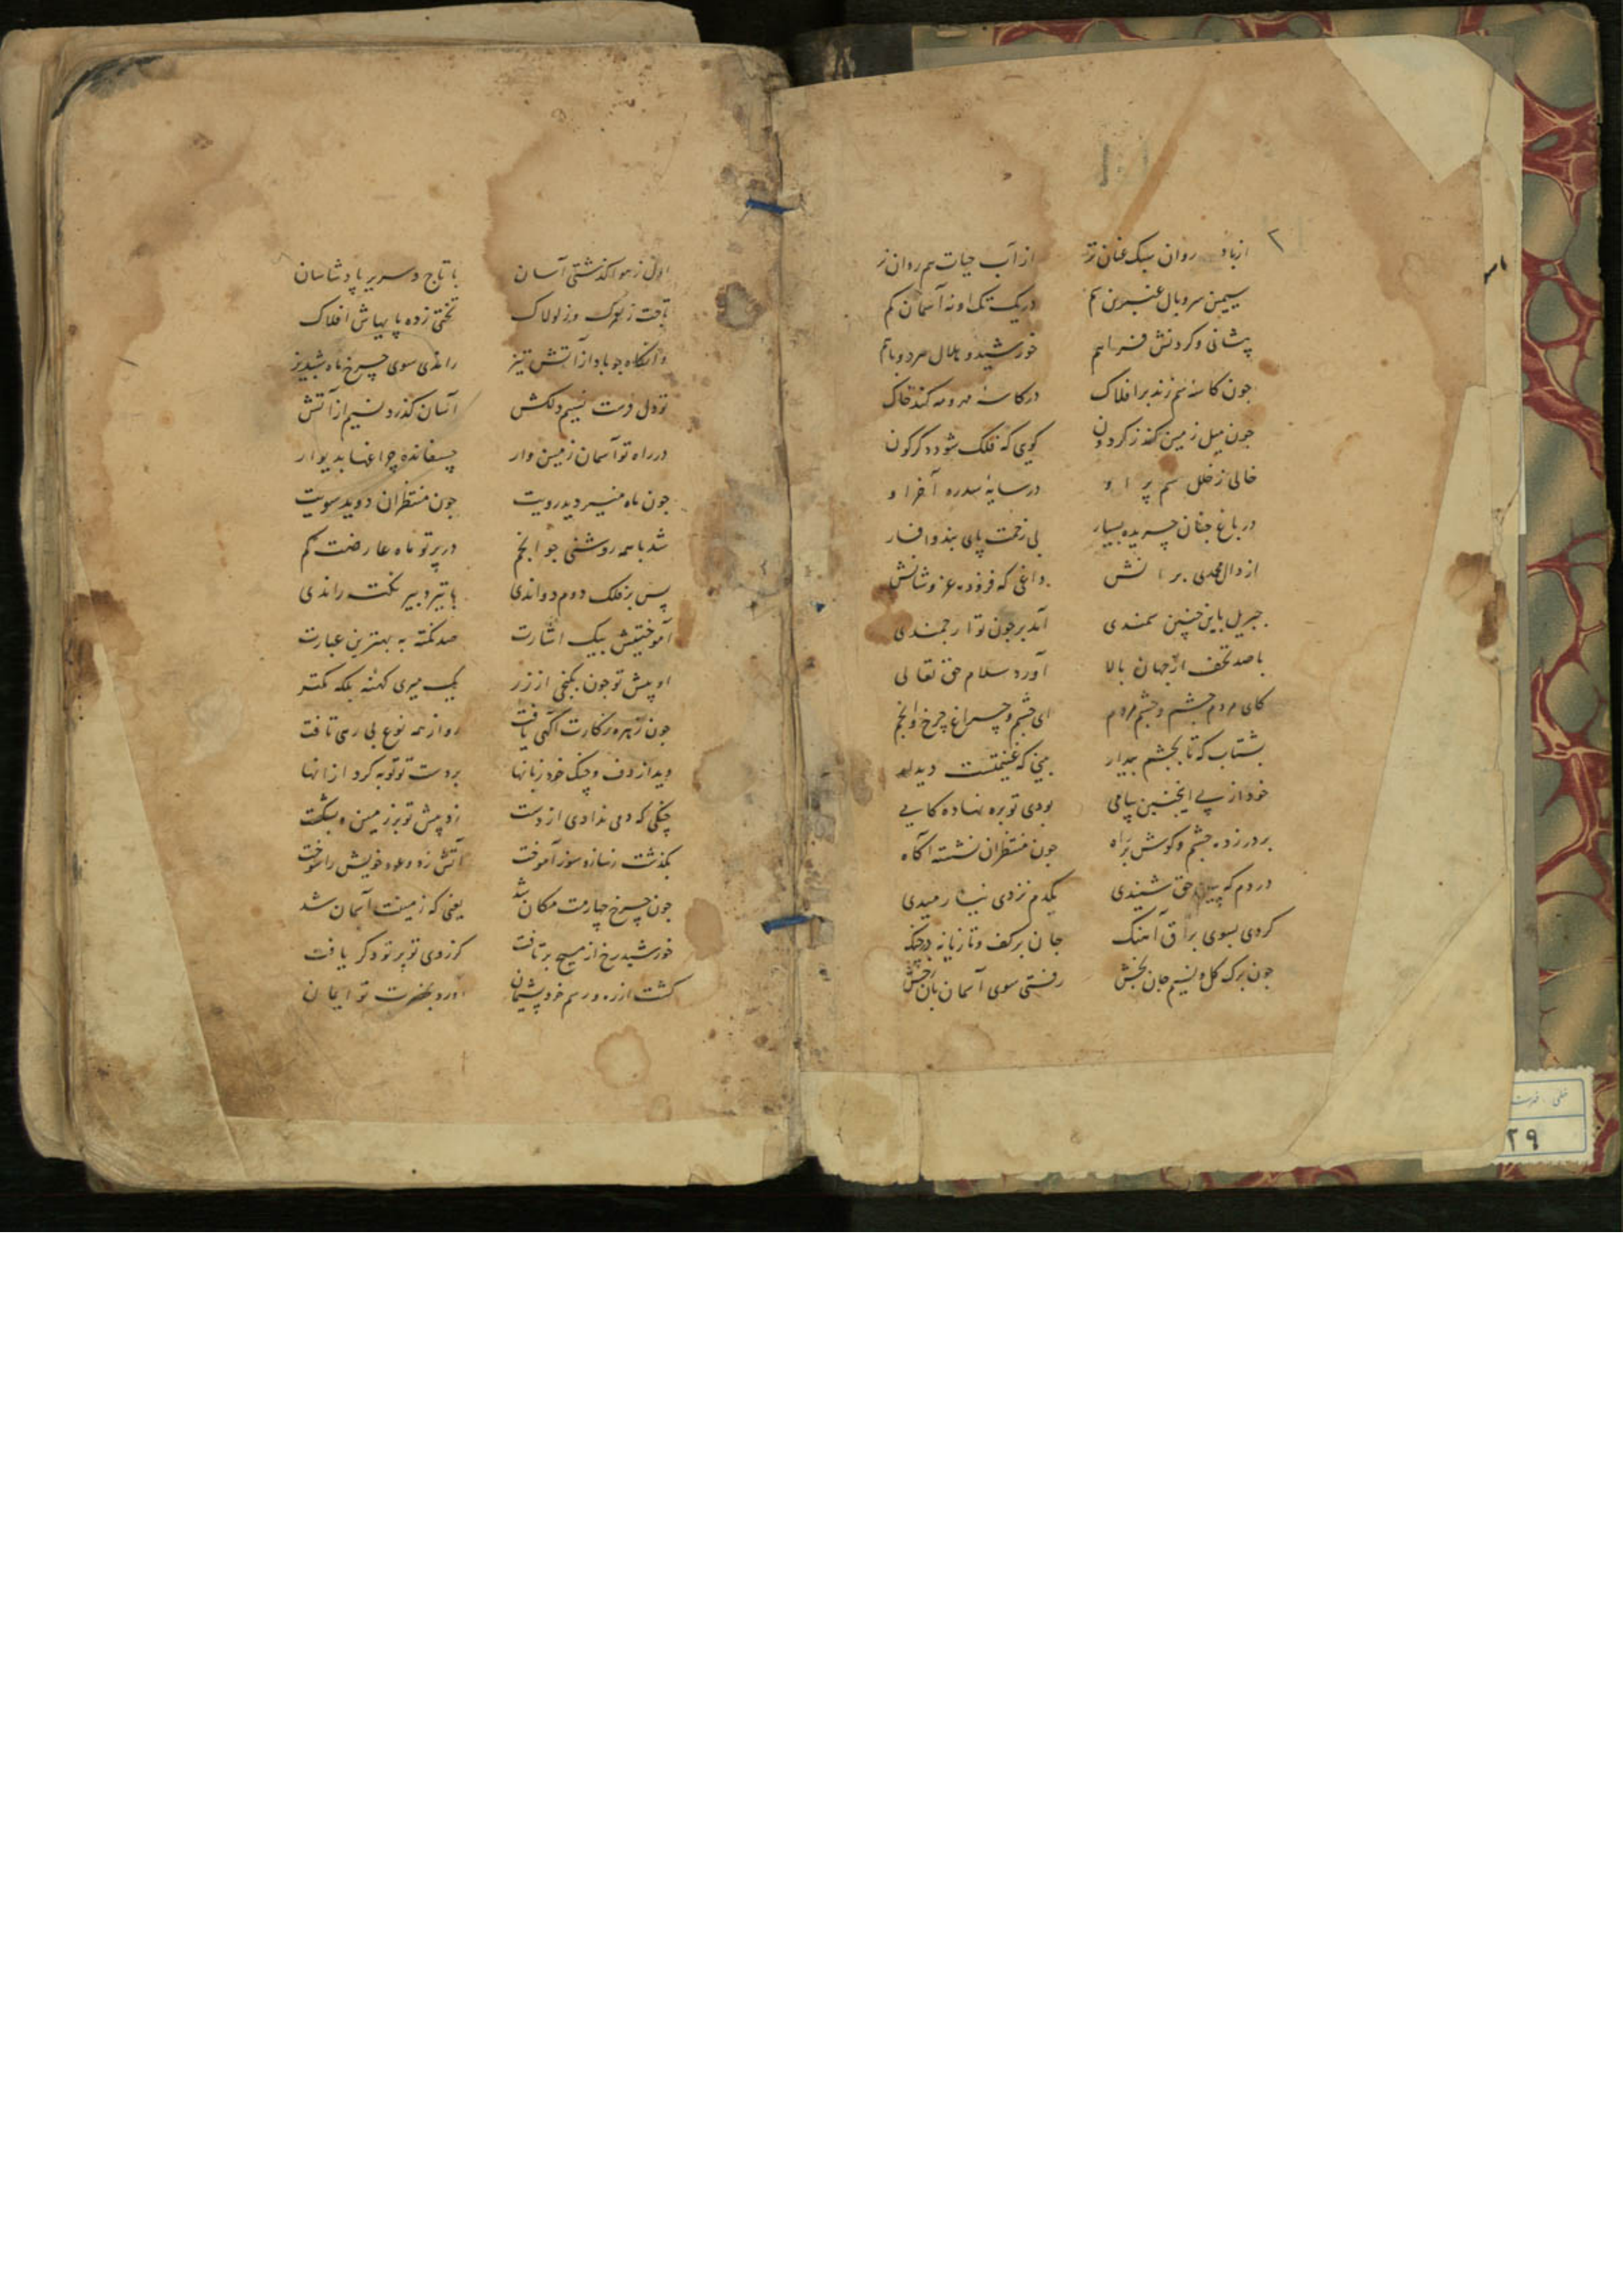 ۲
از باد روان سبک عنان‌تر از آب حیات هم روان‌تر
سیمین سر و یال عنبرین سم در یک تک او نه آسمان کم
پیشانی و کردنش فراهم خورشید و هلال هر دو با هم
جون کاسهٔ سم زند بر افلاک در کاسهٔ مهر و مه کند خاک
جون میل زمین کند ز کردون کویی که فلک شود دکرکون
خالی ز خلل سم در سایهٔ سدره آخر او
در باغ جنان چریده بسیار بی زحمت پای بند و افسار
از دال محمدی داغی که فزود عز و شانش
جبریل باین چنین سمندی آمد بر جون تو ارجمندی
با صد تحف از جهان بالا آورد سلام حق تعالی
کای مردم چشم و چشم مردم ای چشم و چراغ چرخ و انجم
بشتاب که تا بچشم بیدار بینی که غنیمتست دیدار
خود از پی اینچنین پیامی بودی تو بره نهاده کامی
بر در زده چشم و کوش بر راه جون منتظران نشسته آکاه
در دم که پیام حق شنیدی یکدم نزدی
کردی بسوی براق آهنک جان بر کف و تازیانه در چنک
جون برک کل و نسیم جان بخش رفتی سوی آسمان بآن رخش
اول ز هوا کذشتی آسان با تاج و سریر پادشاهان
تاجت ز لعمرک و ز لولاک تختی زده پایهاش افلاک
وانکاه جو باد از آتش تیز راندی سوی چرخ ماه شبدیز
تو دل دمت نسیم دلکش آسان کذرد نسیم از آتش
در راه تو آسمان زمین وار چسفانده چراغها بدیوار
جون ماه منیر دید رویت جون منتظران دوید سویت
شد با همه روشنی جو انجم در پرتو ماه عارضت کم
پس بر فلک دوم دواندی با تیر دبیر نکته راندی
آموختیش بیک اشارت صد نکته به بهترین عبارت
او پیش تو جون یکی از زر یک میری کهنه بلکه کمتر
جون زهره ز کارت آکهی یافت رو از همه نوع بی رهی تافت
دید از دف و چنک خود زیانها بر دست تو توبه کرد از آنها
چنکی که دمی ندادی از دست زد پیش تو بر زمین و بشکست
بکذشت ز ساز و سوز آموخت آتش زد و عود خویش را سوخت
جون چرخ چهارمت مکان شد یعنی که زمینت آسمان شد
خورشید رخ از مسیح برتافت کز روی تو پرتو دکر یافت
کشت از ره و رسم خود پشیمان آورد بحضرت تو ایمان
۲۹